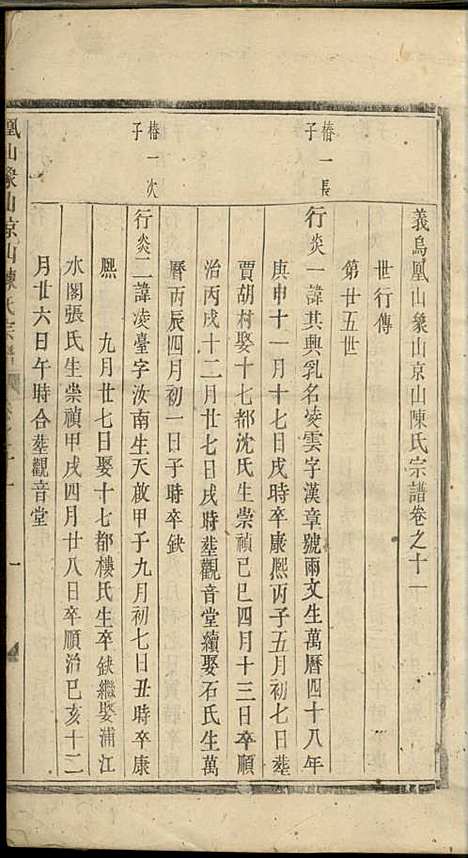 義烏鳳山象山京山陳氏宗譜卷之十一
世行傳
第廿五世
椿一長子
行炎一諱其興乳名淩雲字漢章號雨文生萬曆四十八年
庚申十一月十七日戌時卒康熙丙子五月初七日塟
賈胡村娶十七都沈氏生崇禎己巳四月十三日卒順
治丙戌十二月廿七日戌時塟觀音堂續娶石氏生萬
曆丙辰四月初一日子時卒鈌
椿一次子
行炎二諱凌臺字汝南生天啟甲子九月初七日丑時卒康
熙 九月廿七日娶十七都樓氏生卒鈌繼娶浦江
水閣張氏生崇禎甲戌四月廿八日卒順治己亥十二
月廿六日午時合塟觀音堂
鳳山象山京山陳氏宗譜